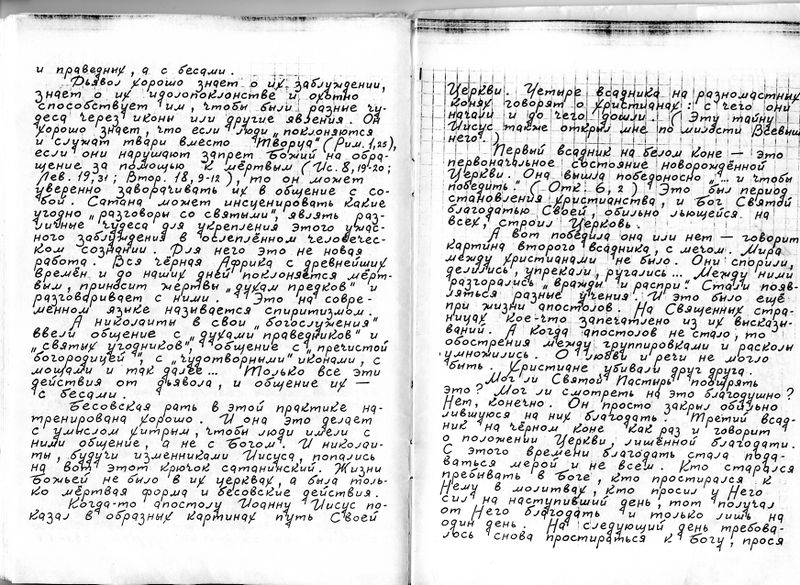 и праведных, а с бесами.
Дьявол хорошо знает о их заблуждении,
знает о их идолопоклонстве и охотно
способствует им, чтобы были разные чу-
деса через иконы или другие явления. Он
хорошо знает, что если люди „поклоняются
и служат твари вместо Творца" (Рим. 1,25),
если они нарушают запрет Божий на обра-
щение за помощью к мёртвым (Ис. 8,19-20;
Лев. 19,31; Втор. 18,9-12), то он может
уверенно заворачивать их в общение с со-
бой. Сатана может инсуенировать какие
угодно „разговоры со святыми", являть раз-
личные чудеса для укрепления этого ужас-
ного заблуждения в ослеплённом человечес-
ком сознании. Для него это не новая
работа. Вся чёрная Африка с древнейших
времён и до наших дней поклоняется мёрт-
вым, приносит жертвы „духам предков" и
разговаривает с ними. Это на совре-
менном языке называется спиритизмом.
А николаиты в свои „богослужения"
ввели общение с „духами праведников" и
„святых угодников", общение с „пречистой
богородицей", с „чудотворными" иконами, с
мощами и так далее... Только все эти
действия от дьявола, и общение их —
с бесами.
Бесовская рать в этой практике на-
тренирована хорошо. И она это делает
с умыслом хитрым, чтобы люди имели с
ними общение, а не с Богом. И николаи-
ты, будучи изменниками Иисуса, попались
на вот этот крючок сатанинский. Жизни
Божьей не было в их церквах, а была толь-
ко мёртвая форма и бесовские действия.
Когда-то апостолу Иоанну Иисус по-
казал в образных картинах путь Своей
Церкви. Четыре всадника на разномастных
конях говорят о христианах: с чего они
начали и до чего дошли. (Эту тайну
Иисус также открыл мне по милости Всевыш
него.)
Первый всадник на белом коне — это
первоначальное состояние новорождённой
Церкви. Она вышла победоносно „... и чтобы
победить." (Отк. 6,2) Это был период
становления христианства, и Бог Святой
благодатью Своей, обильно льющейся на
всех, строил Церковь.
А вот победила она или нет — говорит
картина второго всадника, с мечом. Мира
между христианами не было. Они спорили,
делились, упрекали, ругались... Между ними
разгорались „вражды и распри". Стали появ-
ляться разные учения. И это было ещё
при жизни апостолов. На Священных стра-
ницах кое-что запечатлено из их высказы-
ваний. А когда апостолов не стало, то
обострения между группировками и расколы
умножились. О любви и речи не могло
быть. Христиане убивали друг друга.
Мог ли Святой Пастырь поощрять
это? Мог ли смотреть на это благодушно?
Нет, конечно. Он просто закрыл обильно
лившуюся на них благодать. Третий всад-
ник на чёрном коне как раз и говорит
о положении Церкви, лишённой благодати.
С этого времени благодать стала пода-
ваться мерой и не всем. Кто старался
пребывать в Боге, кто простирался к
Нему в молитвах, кто просил у Него
сил на наступивший день, тот получал
от Него благодать и только лишь на
один день. На следующий день требова-
лось снова простираться к Богу, прося